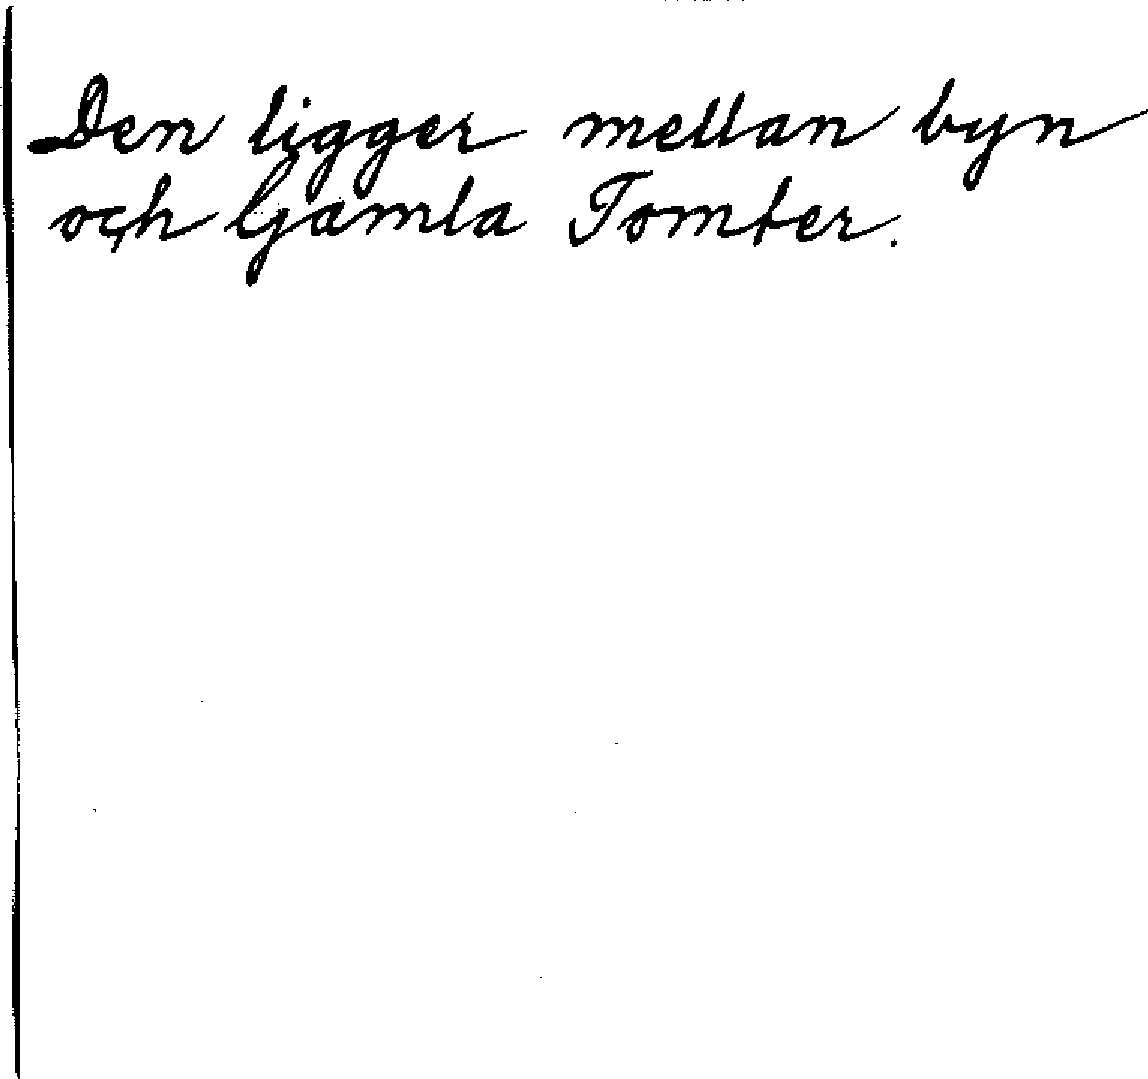 Den ligger mellan byn
och Gamla Tomter.